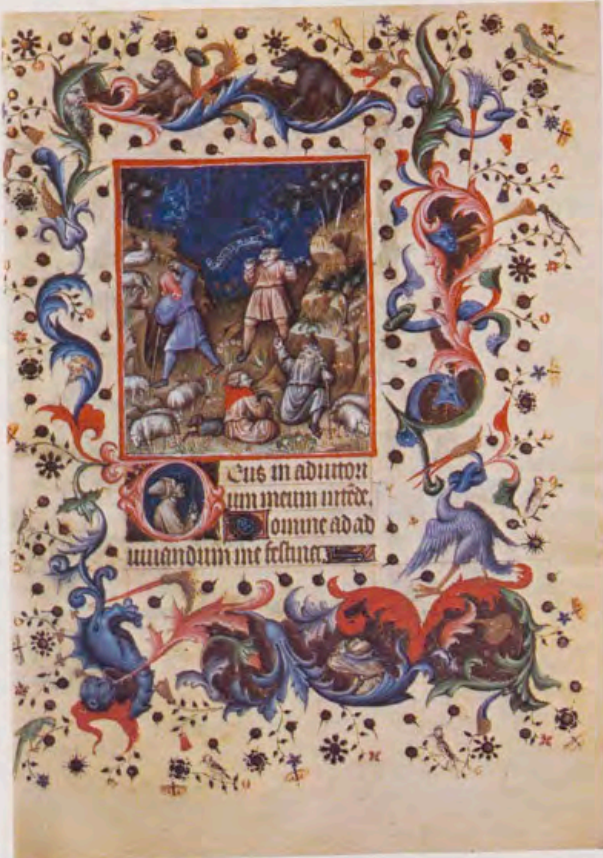 Deus in adiutori
um meum intẽde.
Domine ad ad
iuuandum me festina